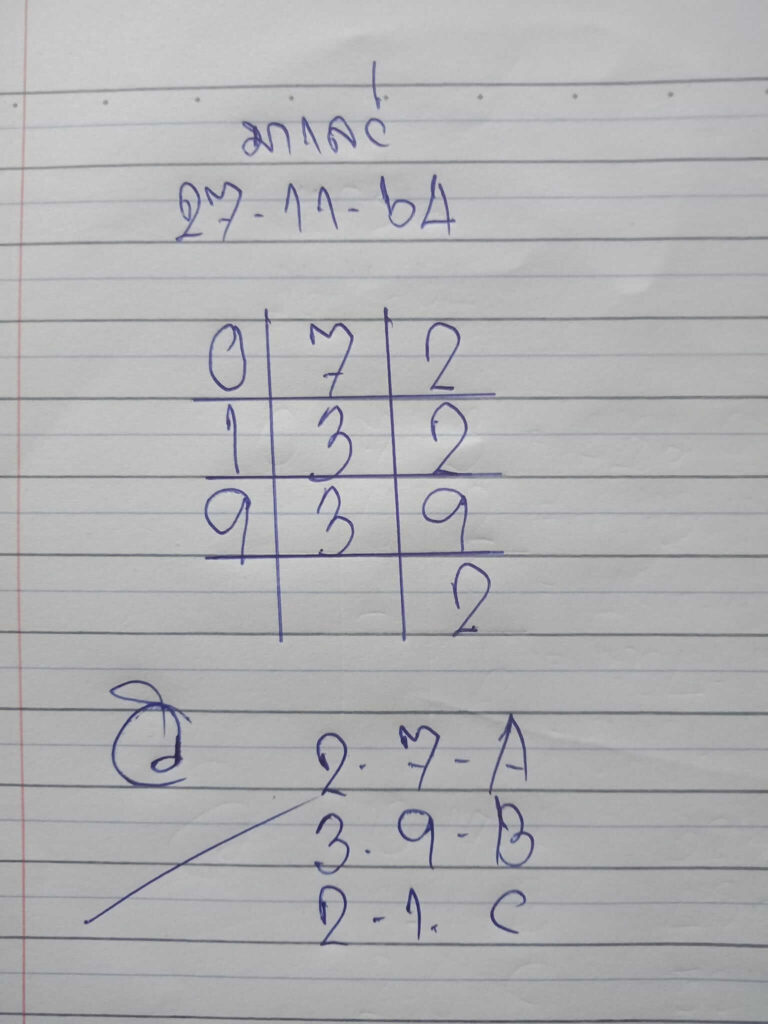 มาเลย์
27-11-64
0 7 2
1 3 2
9 3 9
2
2. 7-A
3. 9-B
2-1. C